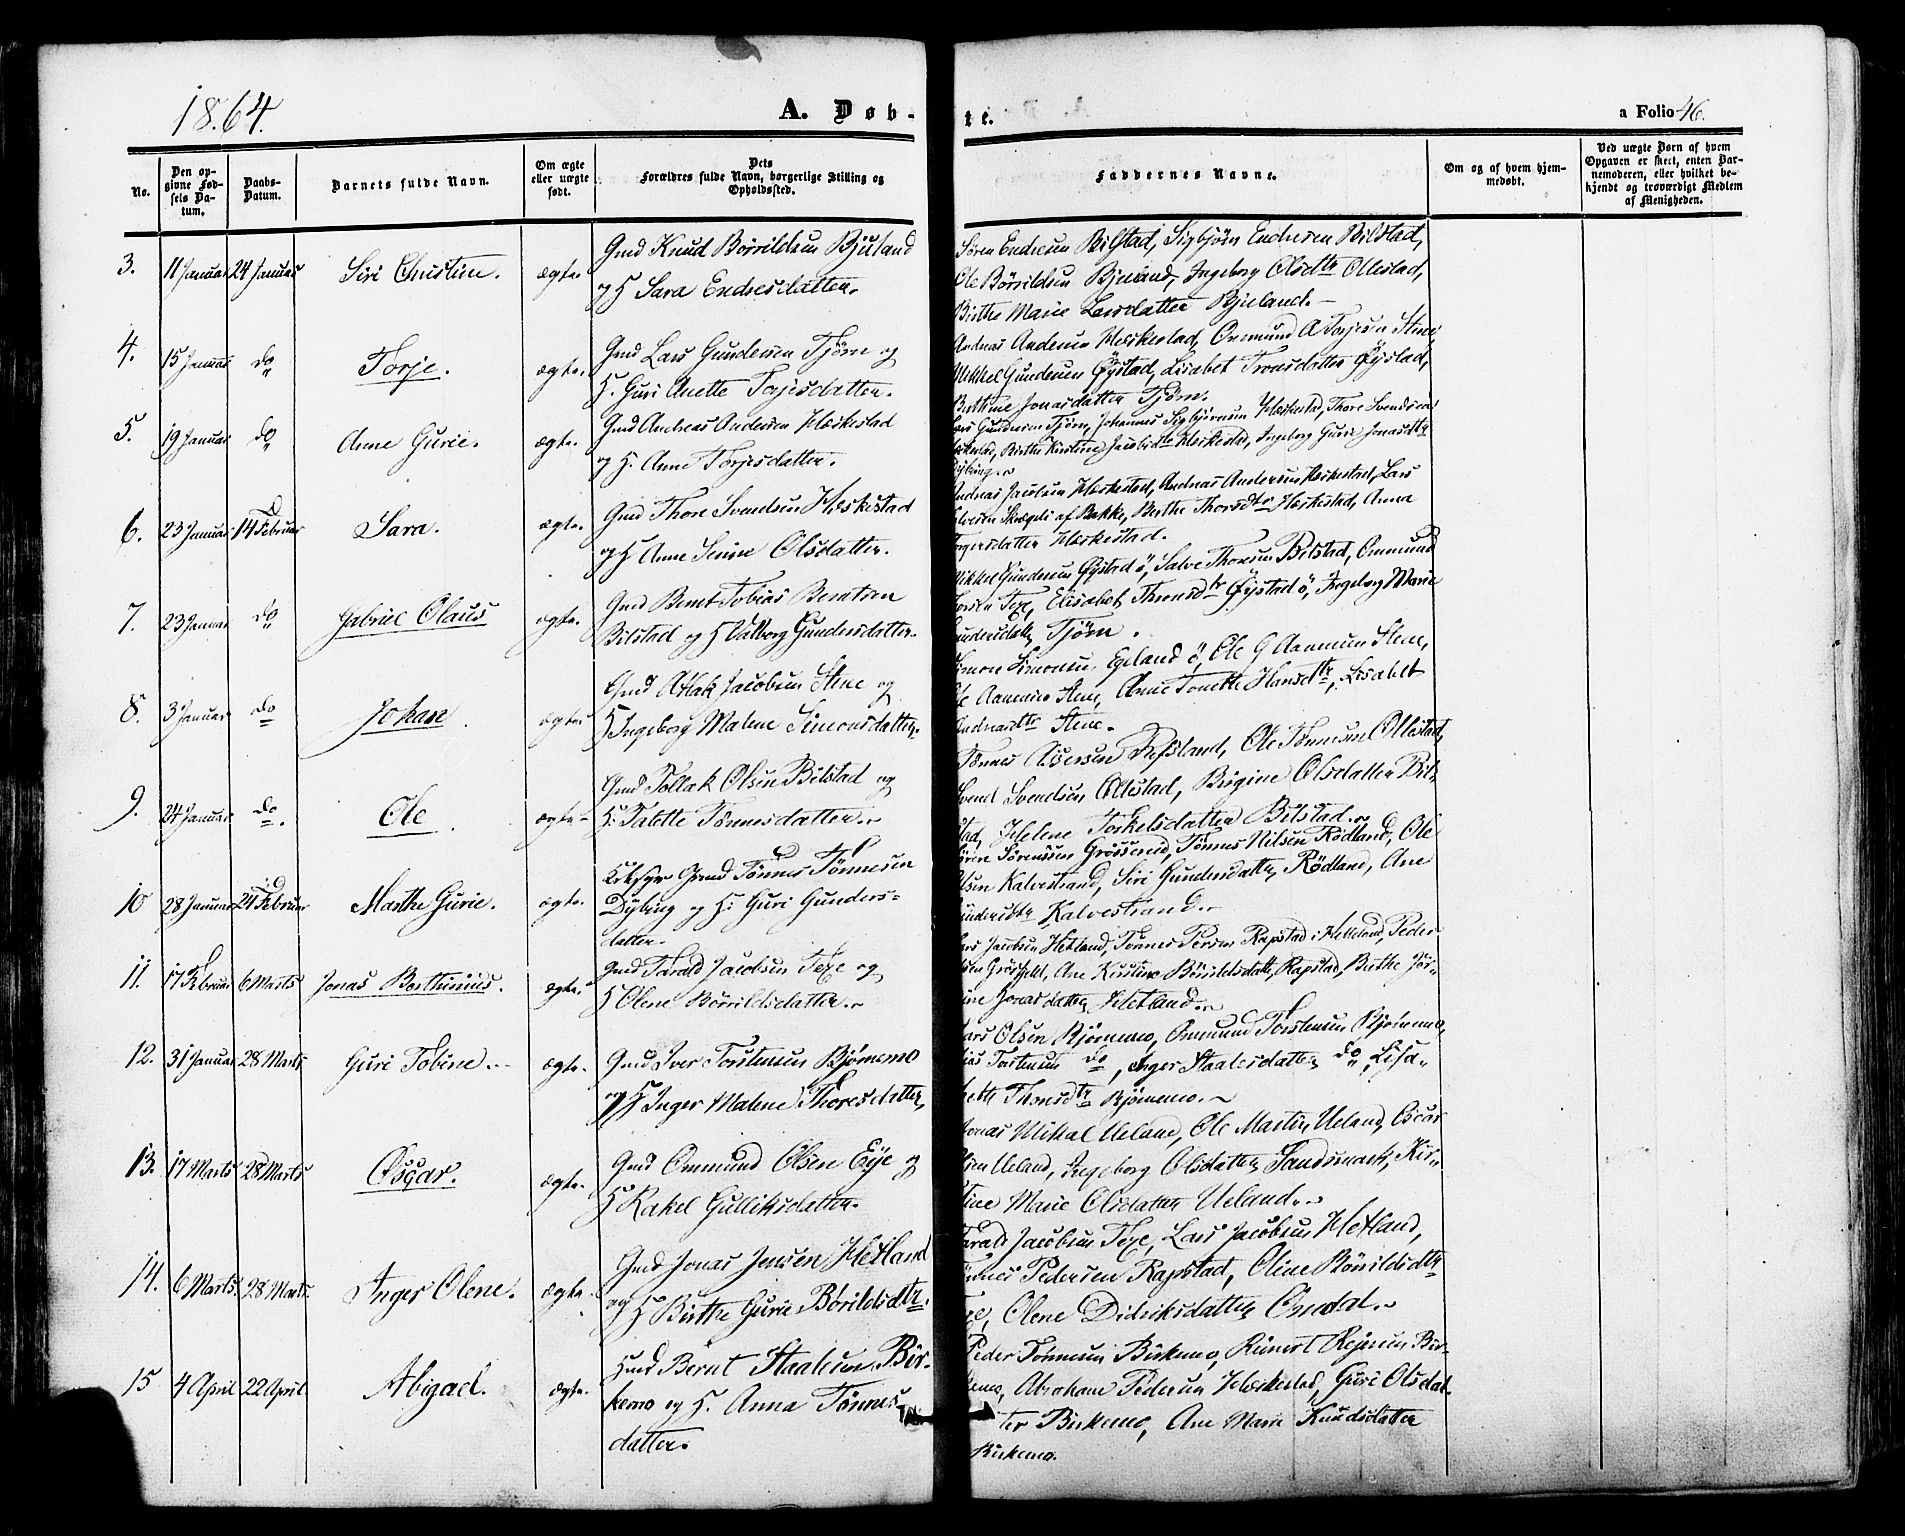 1864.
A. Døb-
te.
a Folio 46.
No.
Den op-
givne Fød-
sels Da-
tum.
Daabs-
Datum.
Barnets fulde Navn.
Om ægte
eller uægte
født.
Dets
Forældres fulde Navn, borgerlige Stilling og
Opholdssted.
Faddernes Navne.
Om og af hvem hjem-
medøbt.
Ved uægte Børn af hvem
Opgaven er skeet, enten Bar-
nemoderen, eller hvilket be-
kjendt og troværdigt Medlem
af Menigheden.
3. 11 Januar 24 Januar Siri Christine. ægte.
Gmd Knud Børrildsen Bjuland
og H Sara Endresdatter.
Søren Endresen Bilstad, Sigbjørn Endresen Bilstad,
Ole Børrildsen Bjuland, Ingeborg Olsdtr Ollestad,
Birthe Marie Larsdatter Bjuland.
4. 15 Januar do Torje. ægte.
Gmd Lars Gundersen Tjørn og
H. Guri Anette Torjesdatter.
Andreas Andersen Hæskestad, Ommund A Torjesen Stene,
Mikkel Gundersen Øystad, Lisabet Tronsdatter Øystad,
Berthine Jonasdatter Tjørn.
5. 19 Januar do Anne Gurie. ægte.
Gmd Andreas Andersen Hæskestad
og H. Anne Torjesdatter.
Lars Gundersen Tjørn, Johannes Sigbjørnsen Hæskestad, Thore Svendsen
Hæskestad, Birthe Kirstine Jacobsdtr Hæskestad, Ingeborg Gurie Jonasdtr
Dybing.
6. 23 Januar 14 Februar Sara. ægte.
Gmd Thore Svendsen Hæskestad
og H Anne Serine Olsdatter.
Andreas Jacobsen Hæskestad, Andreas Andersen Hæskestad, Lars
Skrægeli af Bakke, Birthe Thorsdtr Hæskestad, Anna
Torgersdatter Hæskestad.
7. 23 Januar do Gabriel Olaus ægte.
Gmd Bernt Tobias Berntsen
Bilstad og H Valborg Gundersdatter.
Mikkel Gundersen Øystad ø, Salve Thorsen Bilstad, Ommund
Texe, Elisabet Thronsdtr Øystad ø, Ingeborg Marie
Gundersdattr Tjørn.
8. 3 Januar do Johan. ægte
Gmd Atlak Jacobsen Stene og
H Ingeborg Malene Simonsdatter.
Simon Simonsen Egeland ø, Ole G Aanensen Stene,
Ole Aanensen Stene, Anne Tonette Hansdtr, Lisabet
Andreasdtr Stene.
9. 24 Januar do. Ole. ægte
Gmd Tollak Olsen Bilstad og
H. Talette Tønnesdatter.
Tønnes Assersen Refsland, Ole Tønnesen Ollestad,
Svend Svendsen Ollestad, Birgine Olsdatter Bil-
stad, Helene Torkelsdatter Bilstad.
10 28 Januar 24 Februar Marthe Gurie. ægte.
Gmd Tønnes Tønnesen
Dybing og H: Guri Gunders-
datter.
Søren Sørensen Grøssereid, Tønnes Nilsen Rødland, Ole
Olsen Kalvestrand, Siri Gundersdattr Rødland, Ane
Gundersdtr Kalvestrand.
11. 17 Februar 6 Marts Jonas Berthinius. ægte.
Gmd Tarald Jacobsen Texe og
H Olene Børrildsdatter.
Lars Jacobsen Hetland, Tønnes Persen Rapstad i Helleland, Peder
Ane Kirstine Børrildsdattr Rapstad, Birthe Jør-
gine Jonasdatter Hetland.
12. 31 Januar 28 Marts Guri Tobine. ægte.
Gmd Iver Torstensen Bjørnemo
og H Inger Malene Thoresdatter,
Lars Olsen Bjørnemo, Ommund Torstensen Bjørnemo,
Torstensen do, Inger Staalesdatter do, Lisa-
bette Thorsdtr Bjørnemo.
13. 17 Marts 28 Marts Oscar. ægte.
Gmd Ommund Olsen Eije og
H Rakel Gulliksdatter.
Jonas Mikal Ueland, Ole Martin Ueland, Oscar
Olsen Ueland, Ingeborg Olsdatter Sandsmark, Kir-
stine Marie Olsdatter Ueland.
14. 6 Marts 28 Marts. Inger Olene. ægte.
Gmd Jonas Jensen Hetland
og H Birthe Gurie Børildsdtr.
Tarald Jacobsen Texe, Lars Jacobsen Hetland,
Tønnes Pedersen Rapstad, Oline Børrildsdtr
Texe, Olene Didriksdatter Omdal.
15 4 April 22 April Abigael. ægte.
Gmd Bernt Staalesen Bir-
kemo og H. Anna Tønnes-
datter.
Peder Tønnesen Birkemo, Reinert Rejersen Bir-
kemo, Abraham Pedersen Hæskestad, Guri Olsdat-
ter Birkemo, Ane Marie Knudsdatter
Birkemo.